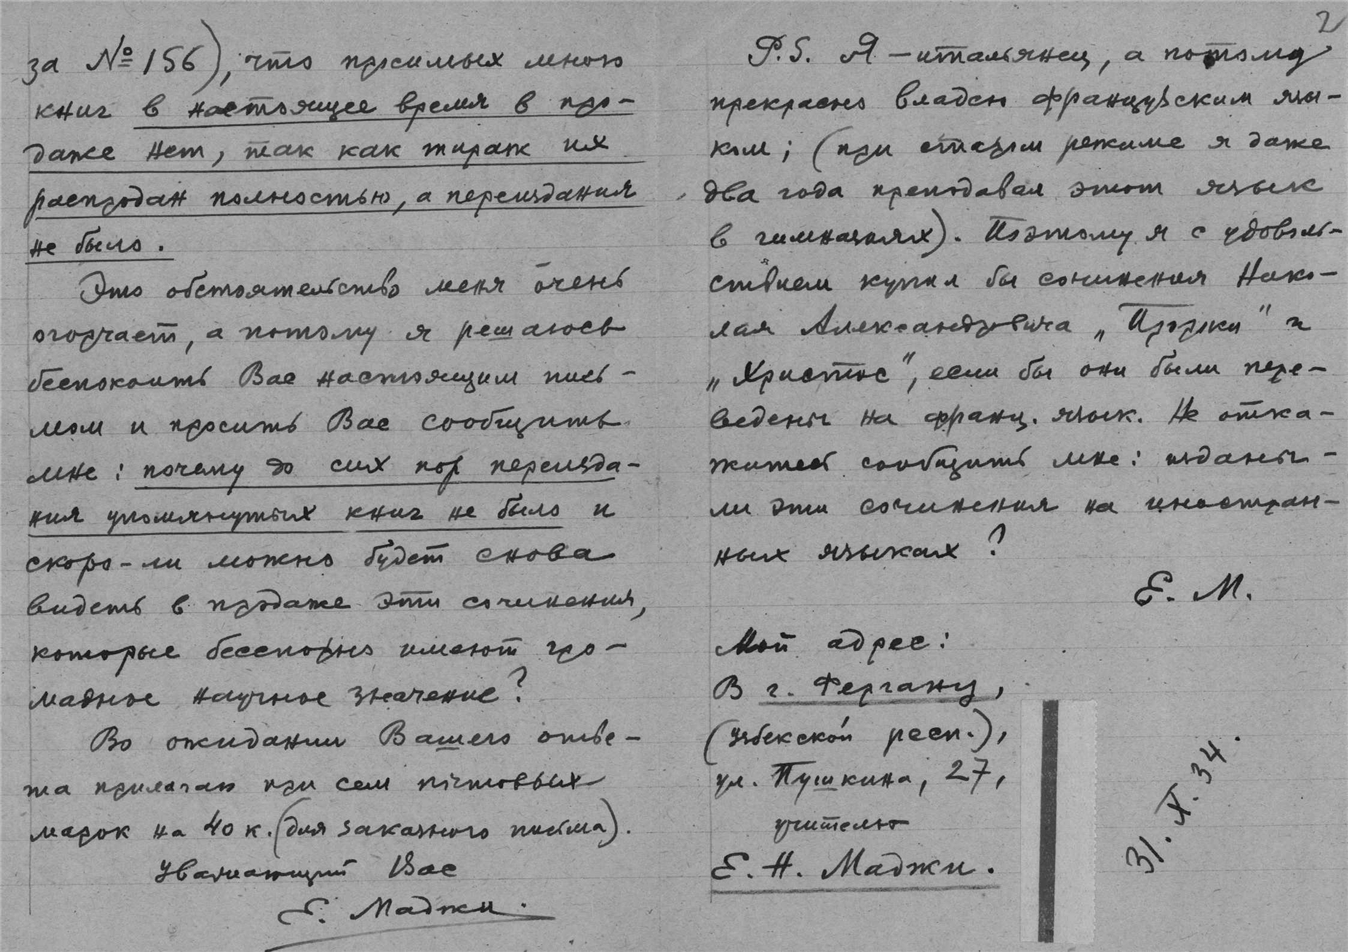 за № 156), что просимых мною
книг в настоящее время в про-
даже нет, так как тираж их
распродан полностью, а переиздания
не было.
Это обстоятельство меня очень
огорчает, а потому я решаюсь
беспокоить Вас настоящим пись-
мом и просить Вас сообщить
мне: почему до сих пор переизда-
ния упомянутых книг не было и
скоро-ли можно будет снова
видеть в продаже эти сочинения,
которые бесспорно имеют гро-
мадное научное значение?
Во ожидании Вашего отве-
та прилагаю при сем почтовых
марок на 40 к. (для заказного письма).
Уважающий Вас
Е. Маджи.
2
P.S. Я — итальянец, а потому
прекрасно владею французским язы-
ком; (при старом режиме я даже
два года преподавал этот язык
в гимназиях). Поэтому я с удоволь-
ствием купил бы сочинения Нико-
лая Александровича „Пророки" и
„Христос", если бы они были пере-
ведены на франц. язык. Не отка-
житесь сообщить мне: изданы-
ли эти сочинения на иностран-
ных языках?
Е. М.
Мой адрес:
В г. Фергану,
(Узбекской респ.),
ул. Пушкина, 27,
учителю
Е. Н. Маджи.
31.X.34.